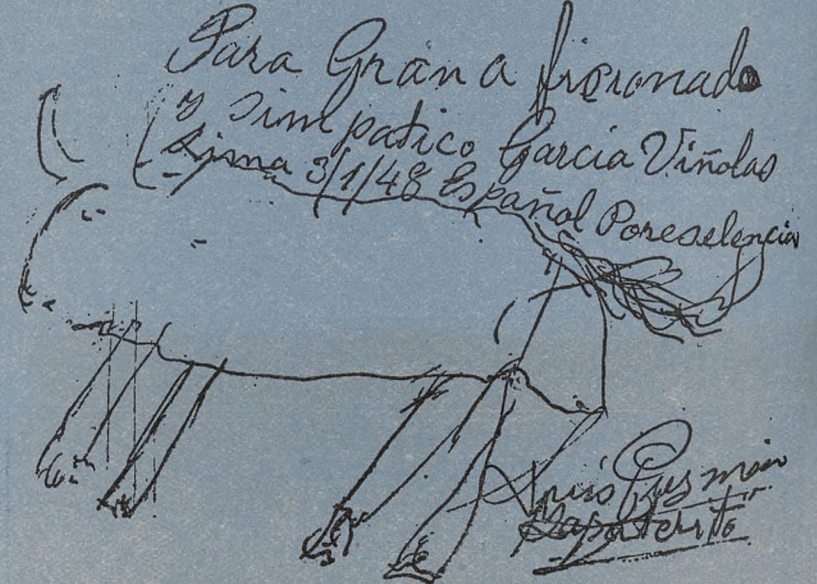 Para Gran Aficionado
y simpatico Garcia Viñolas
Lima 3/1/48 Español Poreselencia
Luis Guzmán
Zapaterito